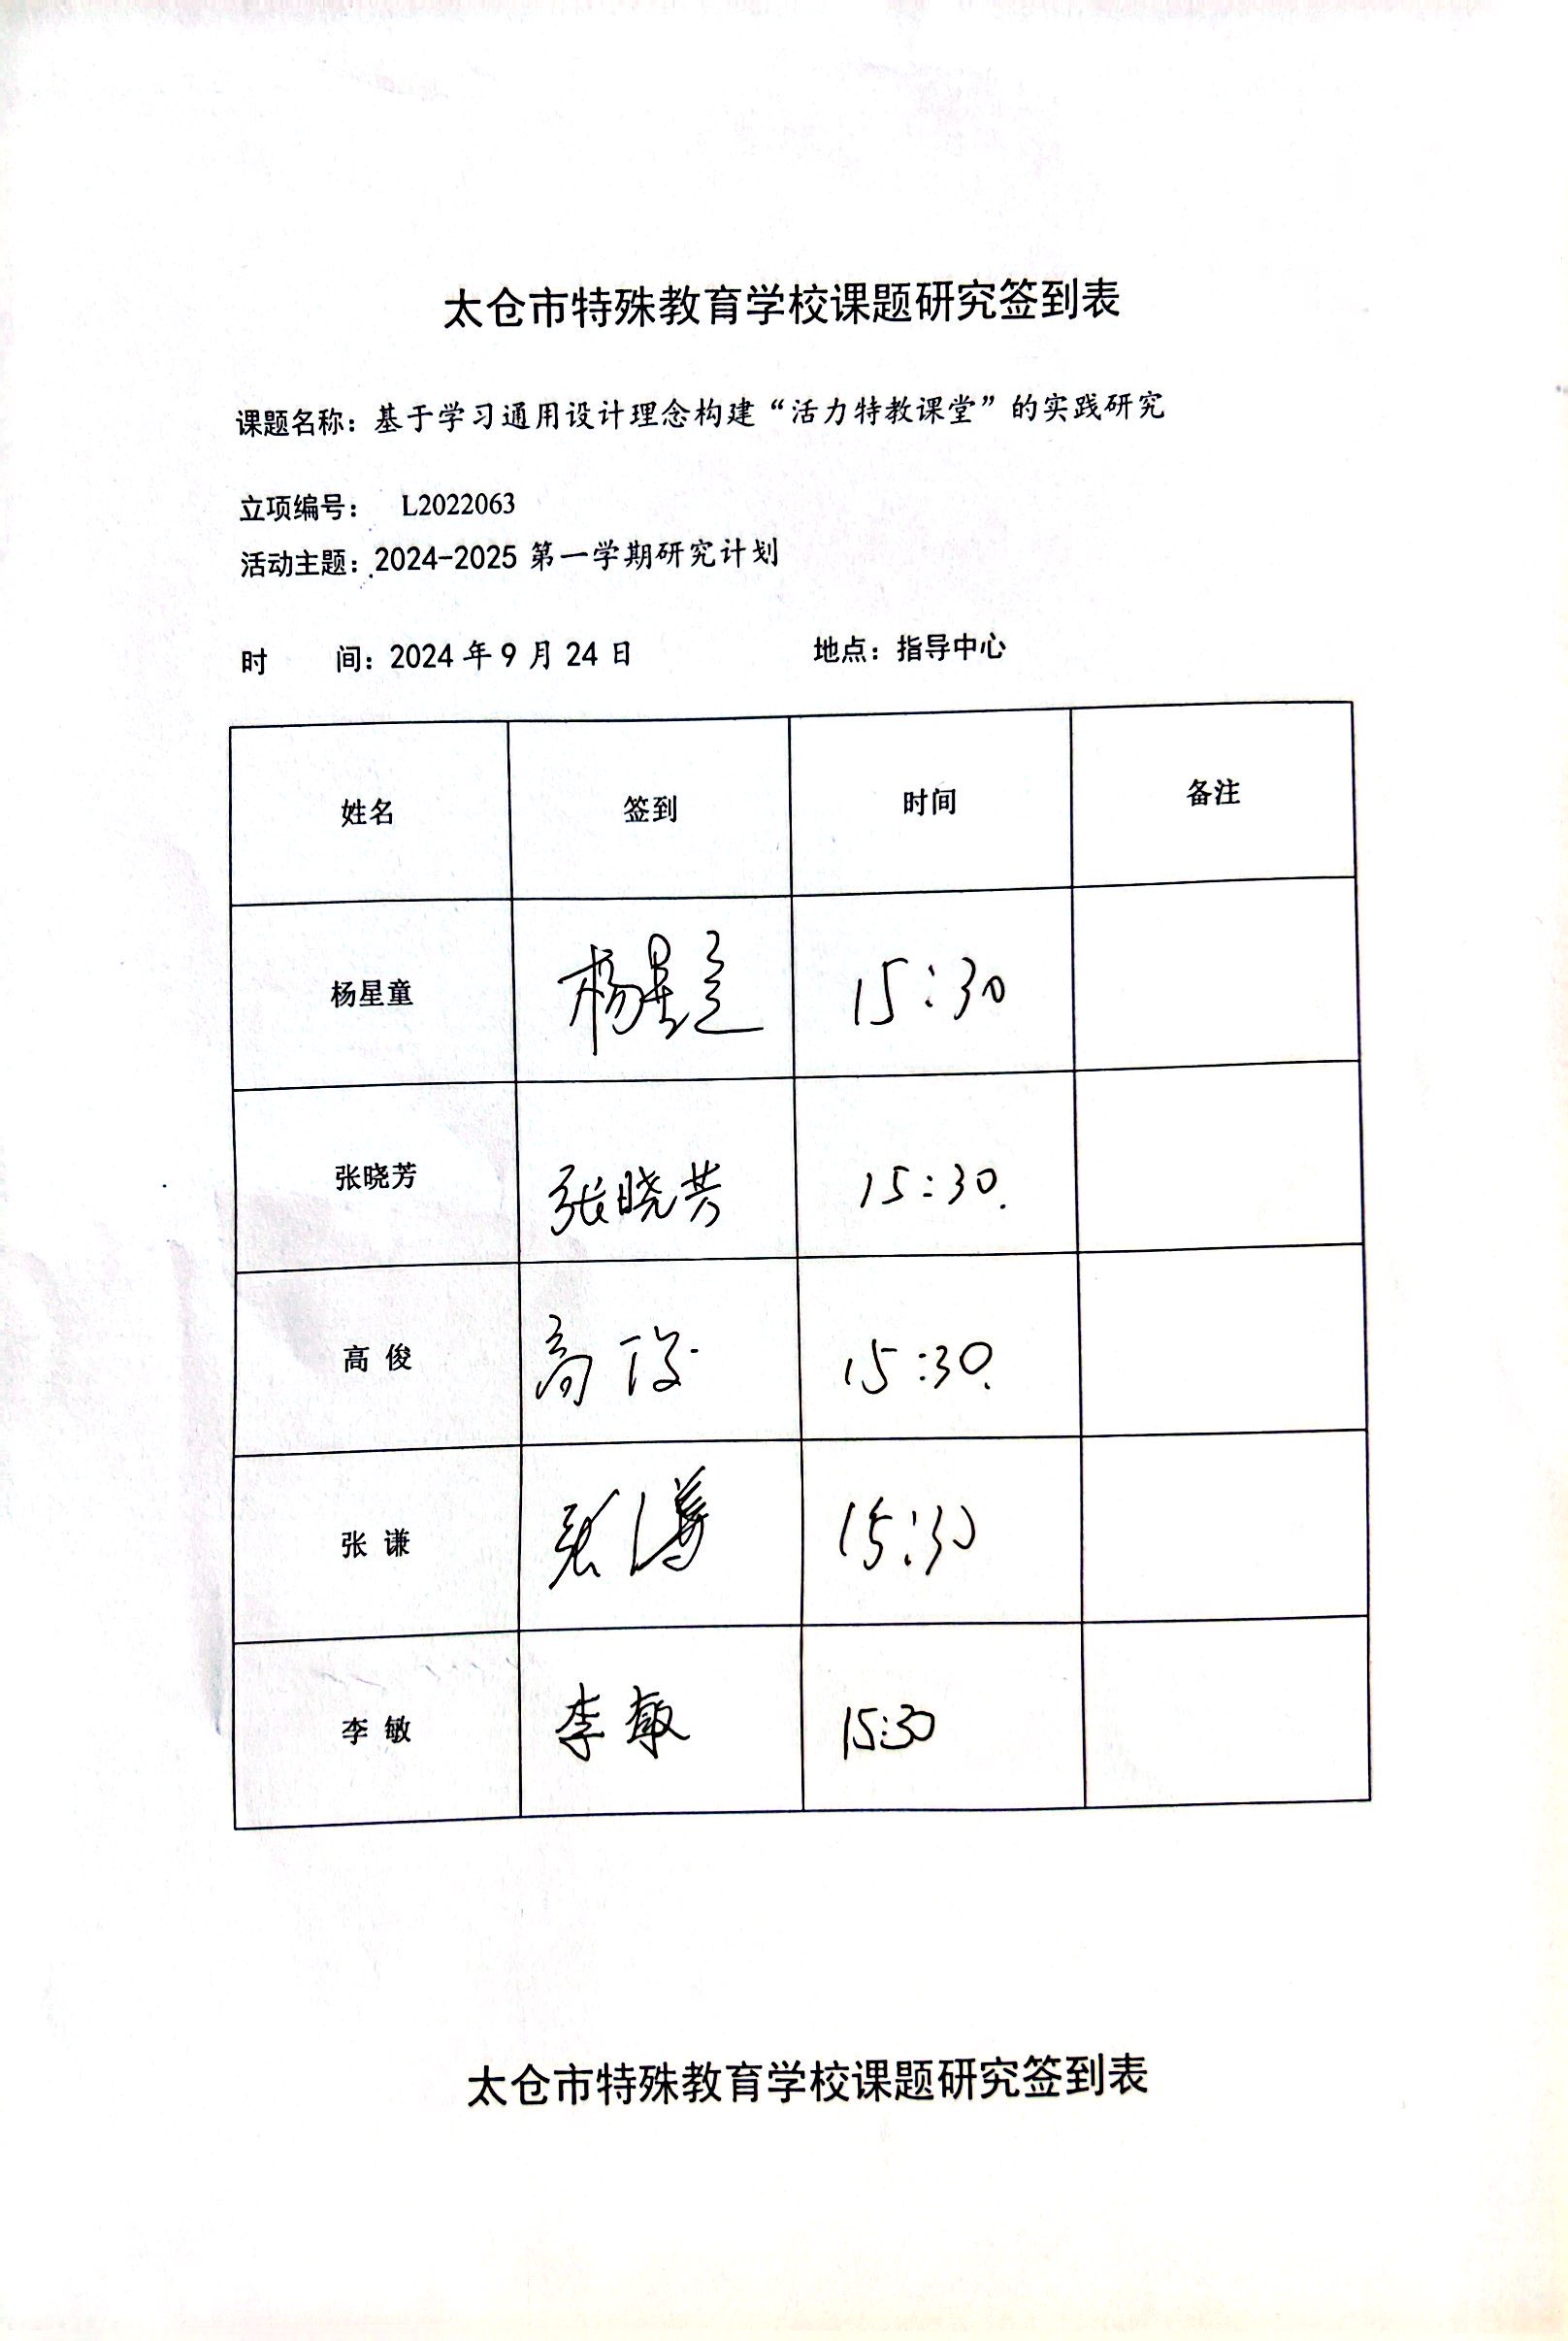 太仓市特殊教育学校课题研究签到表
课题名称：基于学习通用设计理念构建“活力特教课堂”的实践研究
立项编号： L2022063
活动主题：2024-2025 第一学期研究计划
时 间：2024 年 9 月 24 日 地点：指导中心
姓名 签到 时间 备注
杨星童 杨星童 15:30
张晓芳 张晓芳 15:30.
高 俊 高俊 15:30.
张 谦 张谦 15:30
李 敏 李敏 15:30
太仓市特殊教育学校课题研究签到表